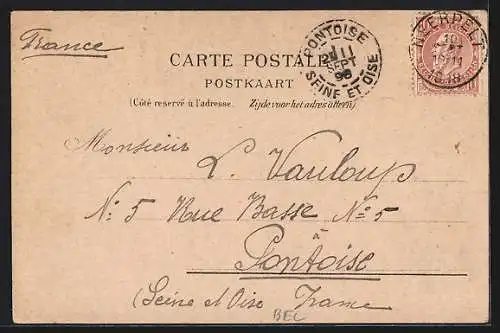 France
CARTE POSTALE
POSTKAART
(Côté reservé à l'adresse. Zijde voor het adres alleen)
PONTOISE
SEPT
98
SEINE ET OISE
NEERPELT
Monsieur
L. Vauloup
N: 5 Rue Basse N: 5
à
Pontoise
(Seine et Oise France
BEL